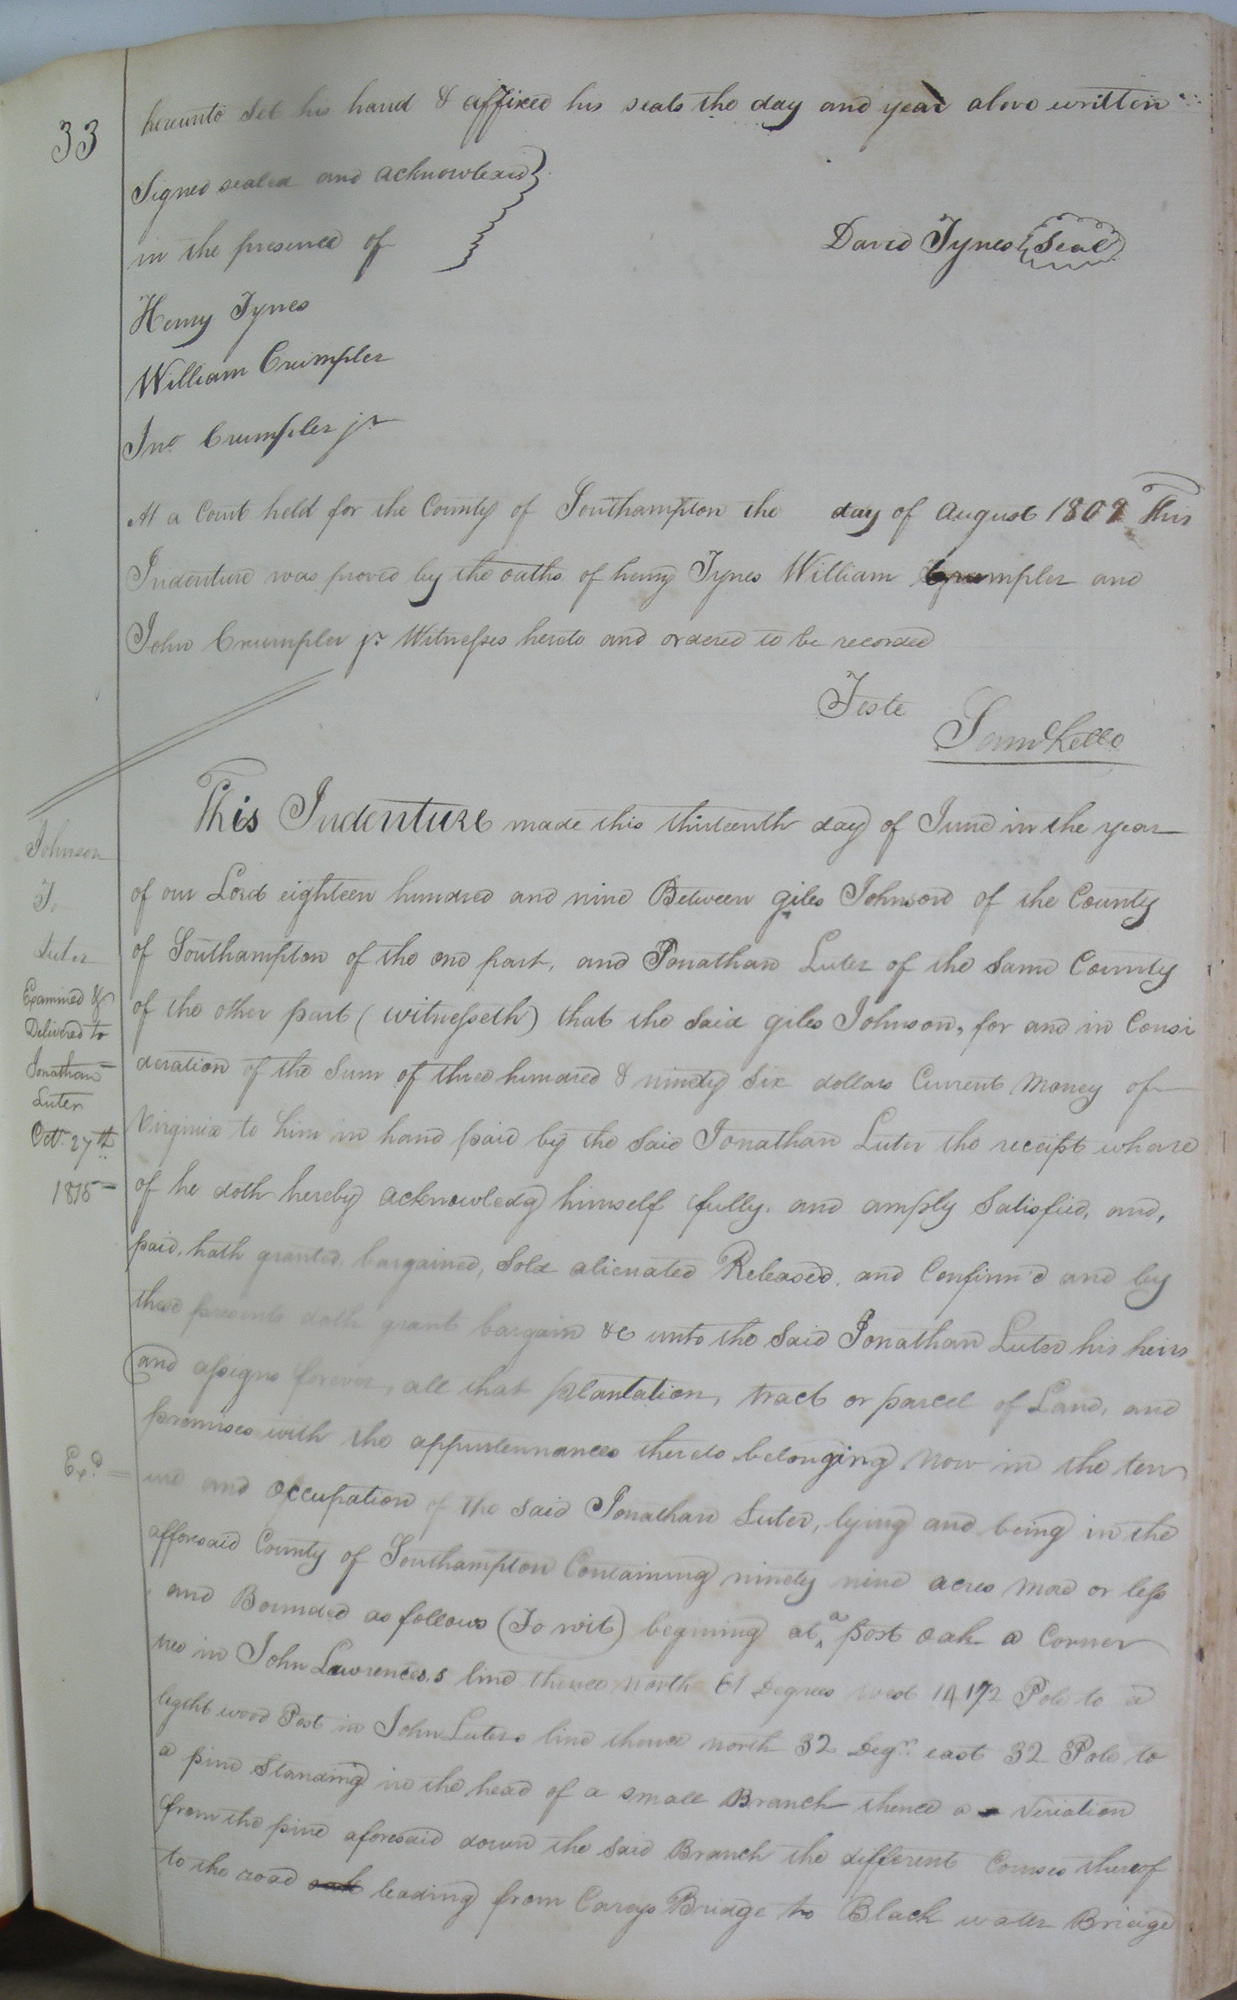 33
hereunto set his hand & affixed his seals the day and year above written
Signed sealed and acknowlexd
in the presence of
David Tynes Seal
Henry Tynes
William Crumpler
Jno. Crumpler jr
At a Court held for the County of Southampton the day of August 1809 This
Indenture was proved by the oaths of henry Tynes William Crumpler and
John Crumpler jr Witnesses hereto and ordered to be recorded
Teste
Saml Kello
This Indenture made this thirteenth day of June in the year
of our Lord eighteen hundred and nine Between giles Johnson of the County
of Southampton of the one part, and Jonathan Luter of the Same County
of the other part (witnesseth) that the Said giles Johnson, for and in Consi
deration of the Sum of three hundred & ninety Six dollars Current Money of
Virginia to him in hand paid by the Said Jonathan Luter the receipt where
of he doth hereby acknowledg himself fully. and amply Satisfied, and,
paid, hath granted, bargained, Sold alienated Released, and Confirm'd and by
these presents doth grant bargain &c unto the Said Jonathan Luter his heirs
and assigns forever, all that plantation, tract or parcel of Land, and
premises with the appurtennances thereto belonging Now in the ten
ure and Occupation of the Said Jonathan Luter, lying and being in the
afforesaid County of Southampton Containing ninety nine acres More or less
and Bounded as follows (To wit) begining at a post oak a Corner
tree in John Lawrences.s line thence North 61 Degrees west 14 1/2 Pole to a
lightwood Post in John Luters line thence north 32 Degrs. east 32 Pole to
a pine Standing in the head of a Small Branch thence a Veriation
from the pine aforesaid down the Said Branch the different Courses thereof
to the road leading from Careys Bridge to Black water Bridge
Johnson
To
Luter
Examined &
Delivered to
Jonathan
Luter
Octr. 27th
1815
Exd.